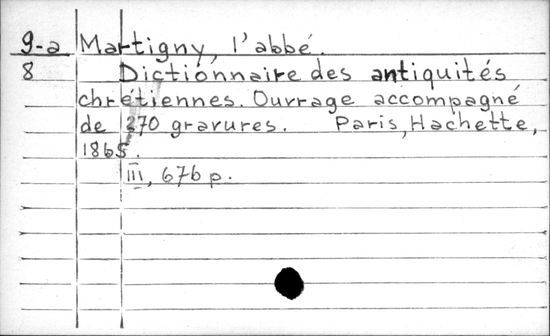 9-a Martigny, l'abbé.
8 Dictionnaire des antiquités
chrétiennes. Ouvrage accompagné
de 270 gravures. Paris, Hachette,
1865.
III, 676 p.